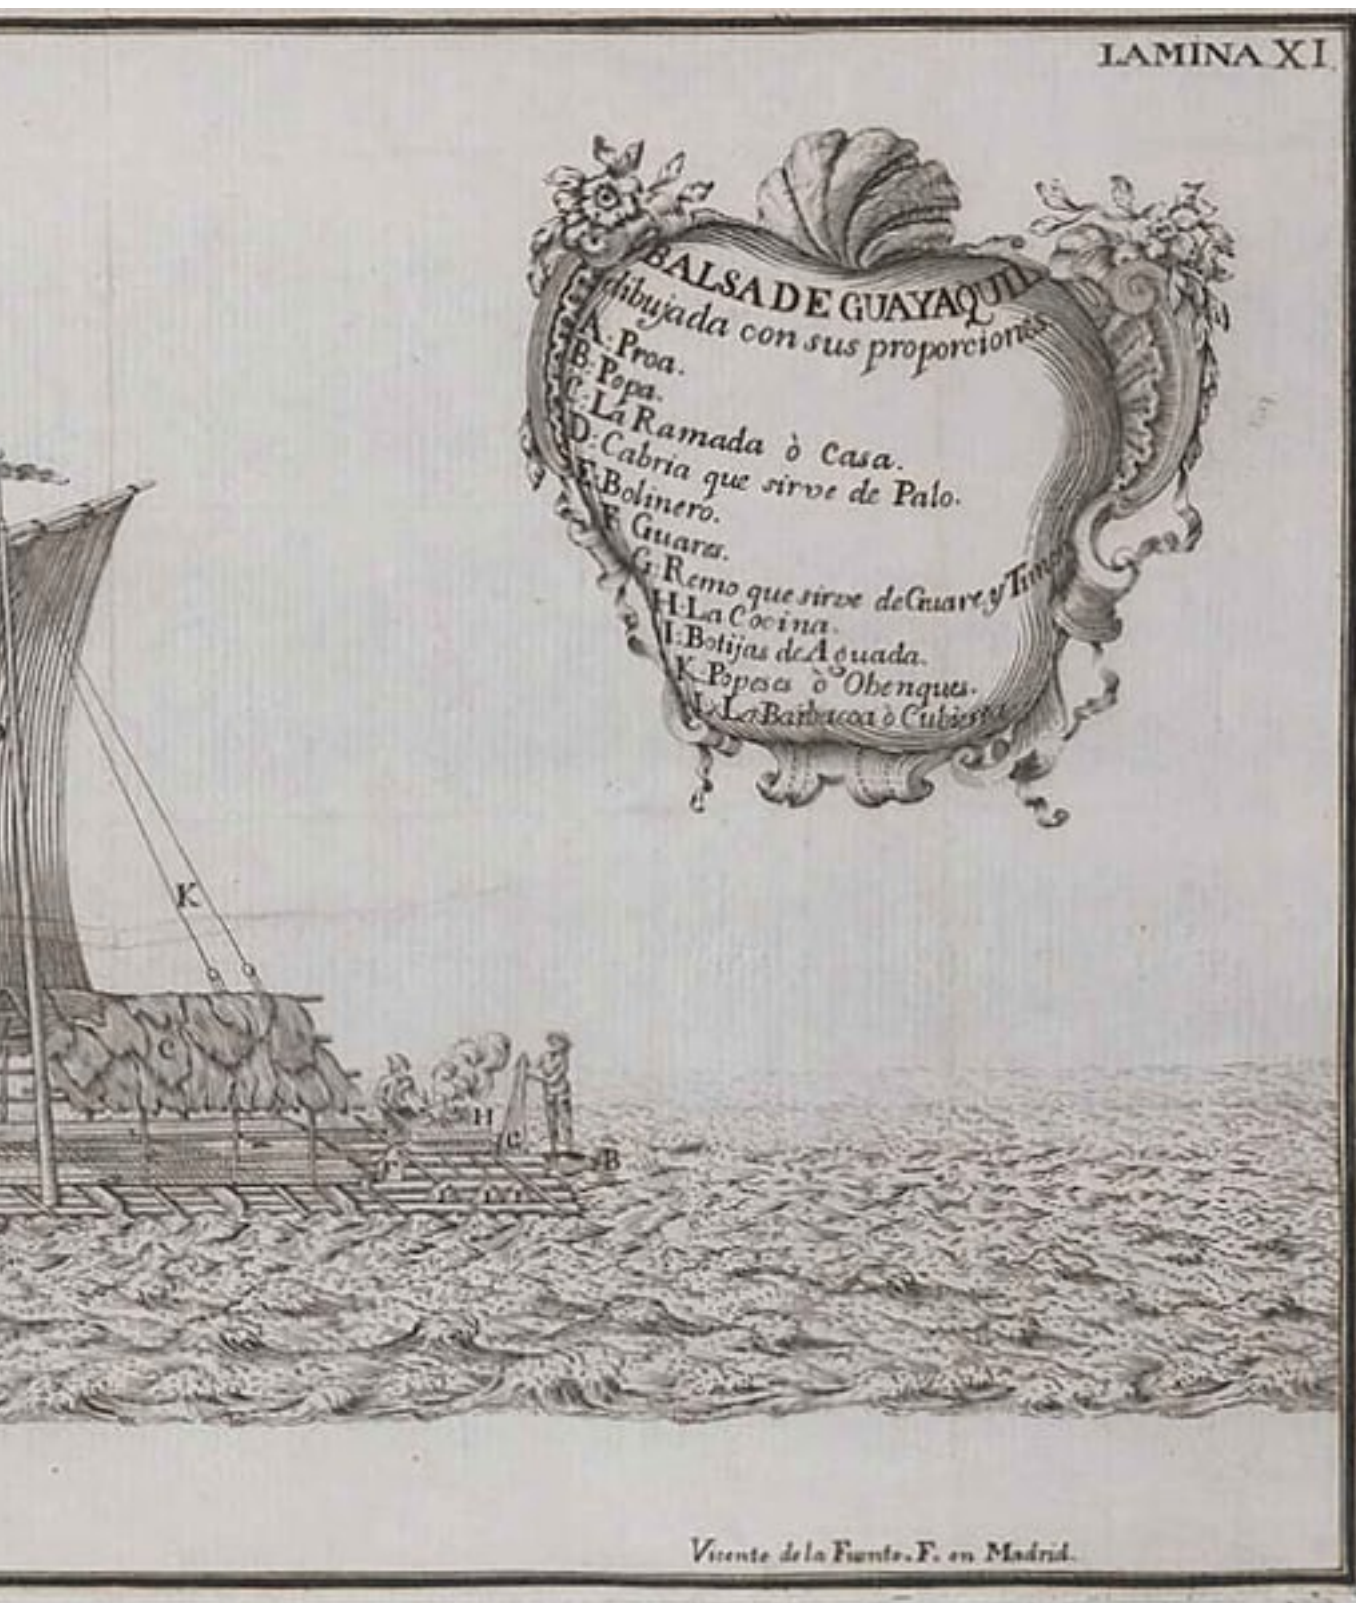 LAMINA XI.
BALSA DE GUAYAQUIL
dibujada con sus proporciones
A: Proa.
B: Popa.
C: La Ramada ò Casa.
D: Cabria que sirve de Palo.
E: Bolinero.
F. Guares.
G: Remo que sirve de Guare, y Timon
H: La Cocina.
I: Botijas de Aguada.
K: Popeses ò Obenques.
L: La Barbacoa ò Cubierta
K
C
H
G
B
F
Vicente de la Fuente. F. en Madrid.